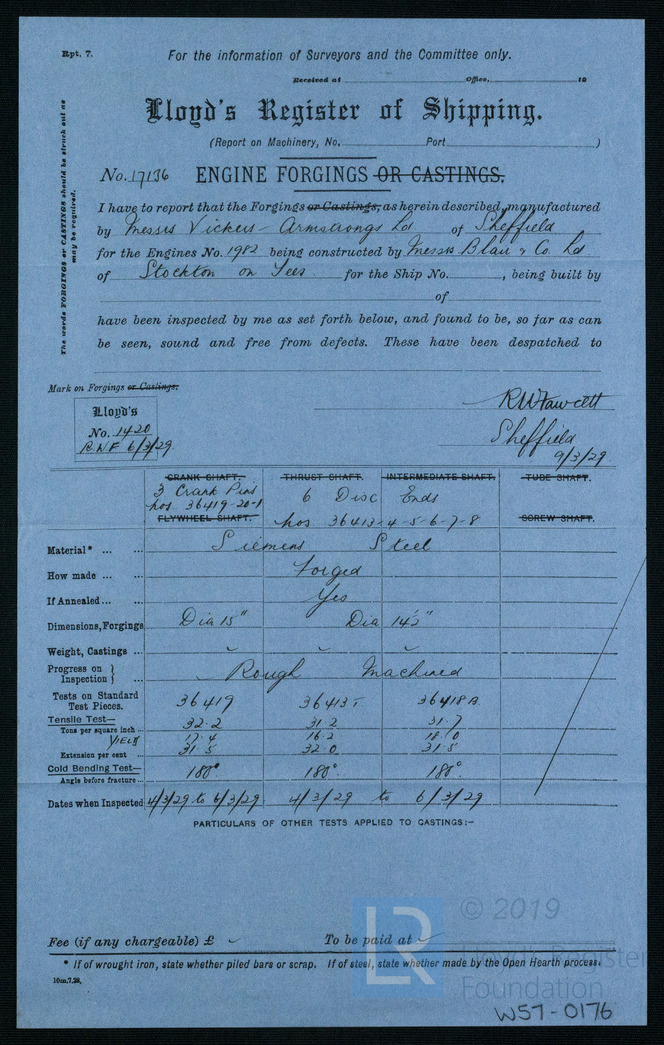 Rpt. 7.
For the information of Surveyors and the Committee only.
Received at Office, 19
Lloyd's Register of Shipping.
(Report on Machinery, No. Port )
No. 17136 ENGINE FORGINGS OR CASTINGS.
The words FORGINGS or CASTINGS should be struck out as
may be required.
I have to report that the Forgings or Castings, as herein described, manufactured
by Messrs Vickers Armstrongs Ld of Sheffield
for the Engines No. 1982 being constructed by Messrs Blair & Co. Ld
of Stockton on Tees for the Ship No. , being built by
of
have been inspected by me as set forth below, and found to be, so far as can
be seen, sound and free from defects. These have been despatched to
Mark on Forgings or Castings:
Lloyd's
No. 1420
RWF 6/3/29
RWFawcett
Sheffield
9/3/29
CRANK SHAFT. THRUST SHAFT. INTERMEDIATE SHAFT. TUBE SHAFT.
3 Crank Pins 6 Disc Ends
nos 36419-20-1 nos 36413-4-5-6-7-8
FLYWHEEL SHAFT. SCREW SHAFT.
Material* ... ... Siemens Steel
How made ... ... Forged
If Annealed... ... Yes
Dimensions, Forgings Dia 15" Dia 14½"
Weight, Castings ...
Progress on Inspection } ... Rough Machined
Tests on Standard Test Pieces. 36419 36413 36418A
Tensile Test—
Tons per square inch ... 32.2 31.2 31.7
YIELD 17.4 16.2 18.0
Extension per cent ... 31.5 32.0 31.5
Cold Bending Test—
Angle before fracture... 180° 180° 180°
Dates when Inspected 4/3/29 to 6/3/29 4/3/29 to 6/3/29
PARTICULARS OF OTHER TESTS APPLIED TO CASTINGS:-
Fee (if any chargeable) £ To be paid at
* If of wrought iron, state whether piled bars or scrap. If of steel, state whether made by the Open Hearth process.
10m,7,28,
LR
© 2019
Lloyd's Register
Foundation
W57-0176